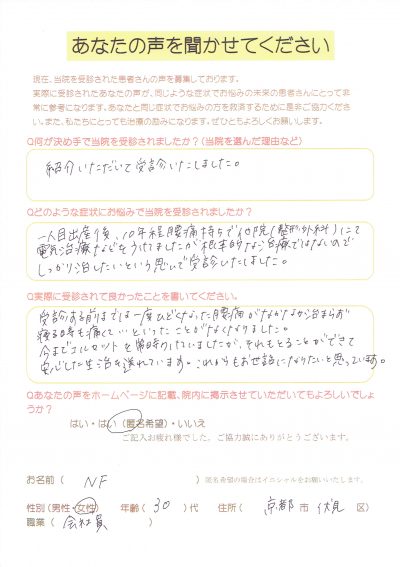 あなたの声を聞かせてください
現在、当院を受診された患者さんの声を募集しております。
実際に受診されたあなたの声が、同じような症状でお悩みの未来の患者さんにとって非
常に参考になります。あなたと同じ症状でお悩みの方を救済するために是非ご協力くださ
い。また、私たちにとっても治療の励みになります。ぜひともよろしくお願いします。
Q何が決め手で当院を受診されましたか？(当院を選んだ理由など)
紹介いただいて受診いたしました。
Qどのような症状にお悩みで当院を受診されましたか？
一人目出産後、10年程腰痛持ちで他院(整形外科)にて
電気治療などをうけてましたが根本的な治療ではないので
しっかり治したいという思いで受診いたしました。
Q実際に受診されて良かったことを書いてください。
受診する前までは一度ひどくなった腰痛がなかなか治まらず
寝る時も痛くて…といったことがなくなりました。
今までコルセットを常時つけていましたが、それもとることができて
安心した生活を送れています。これからもお世話になりたいと思っています。
Qあなたの声をホームページに記載、院内に掲示させていただいてもよろしいでしょ
うか？
はい・はい(匿名希望)・いいえ
ご記入お疲れ様でした。ご協力誠にありがとうございます。
お名前 ( NF ) 匿名希望の場合はイニシャルをお願いいたします。
性別(男性・女性) 年齢( 30 )代 住所( 京都 市 伏見 区)
職業( 会社員 )